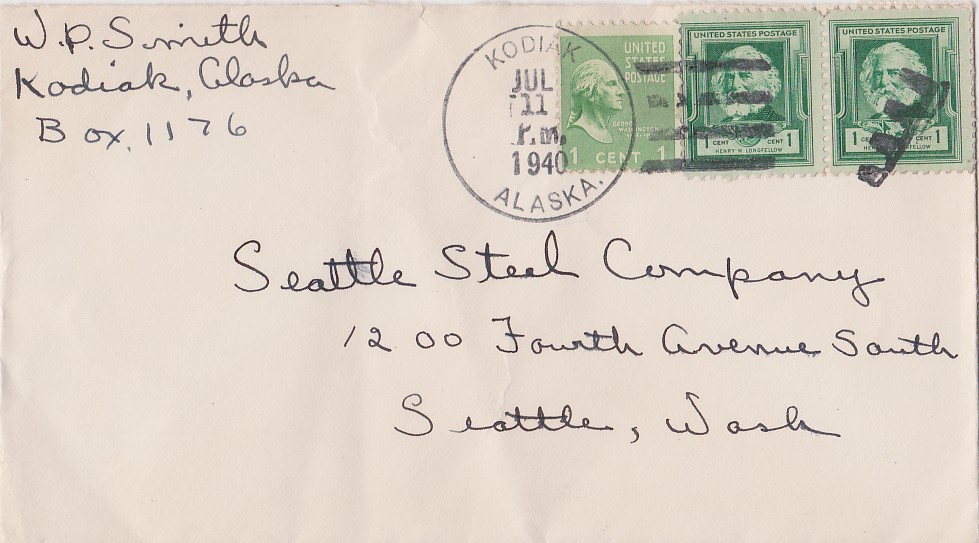 W.P. Smith
Kodiak, Alaska
Box, 1176
KODIAK
JUL
11
P.M.
1940
ALASKA.
UNITED
STATES
POSTAGE
GEORGE
WASHINGTON
1 CENT 1
UNITED STATES POSTAGE
1 CENT CENT 1
HENRY W. LONGFELLOW
UNITED STATES POSTAGE
1 CENT CENT 1
HENRY W. LONGFELLOW
Seattle Steel Company
1200 Fourth Avenue South
Seattle, Wash